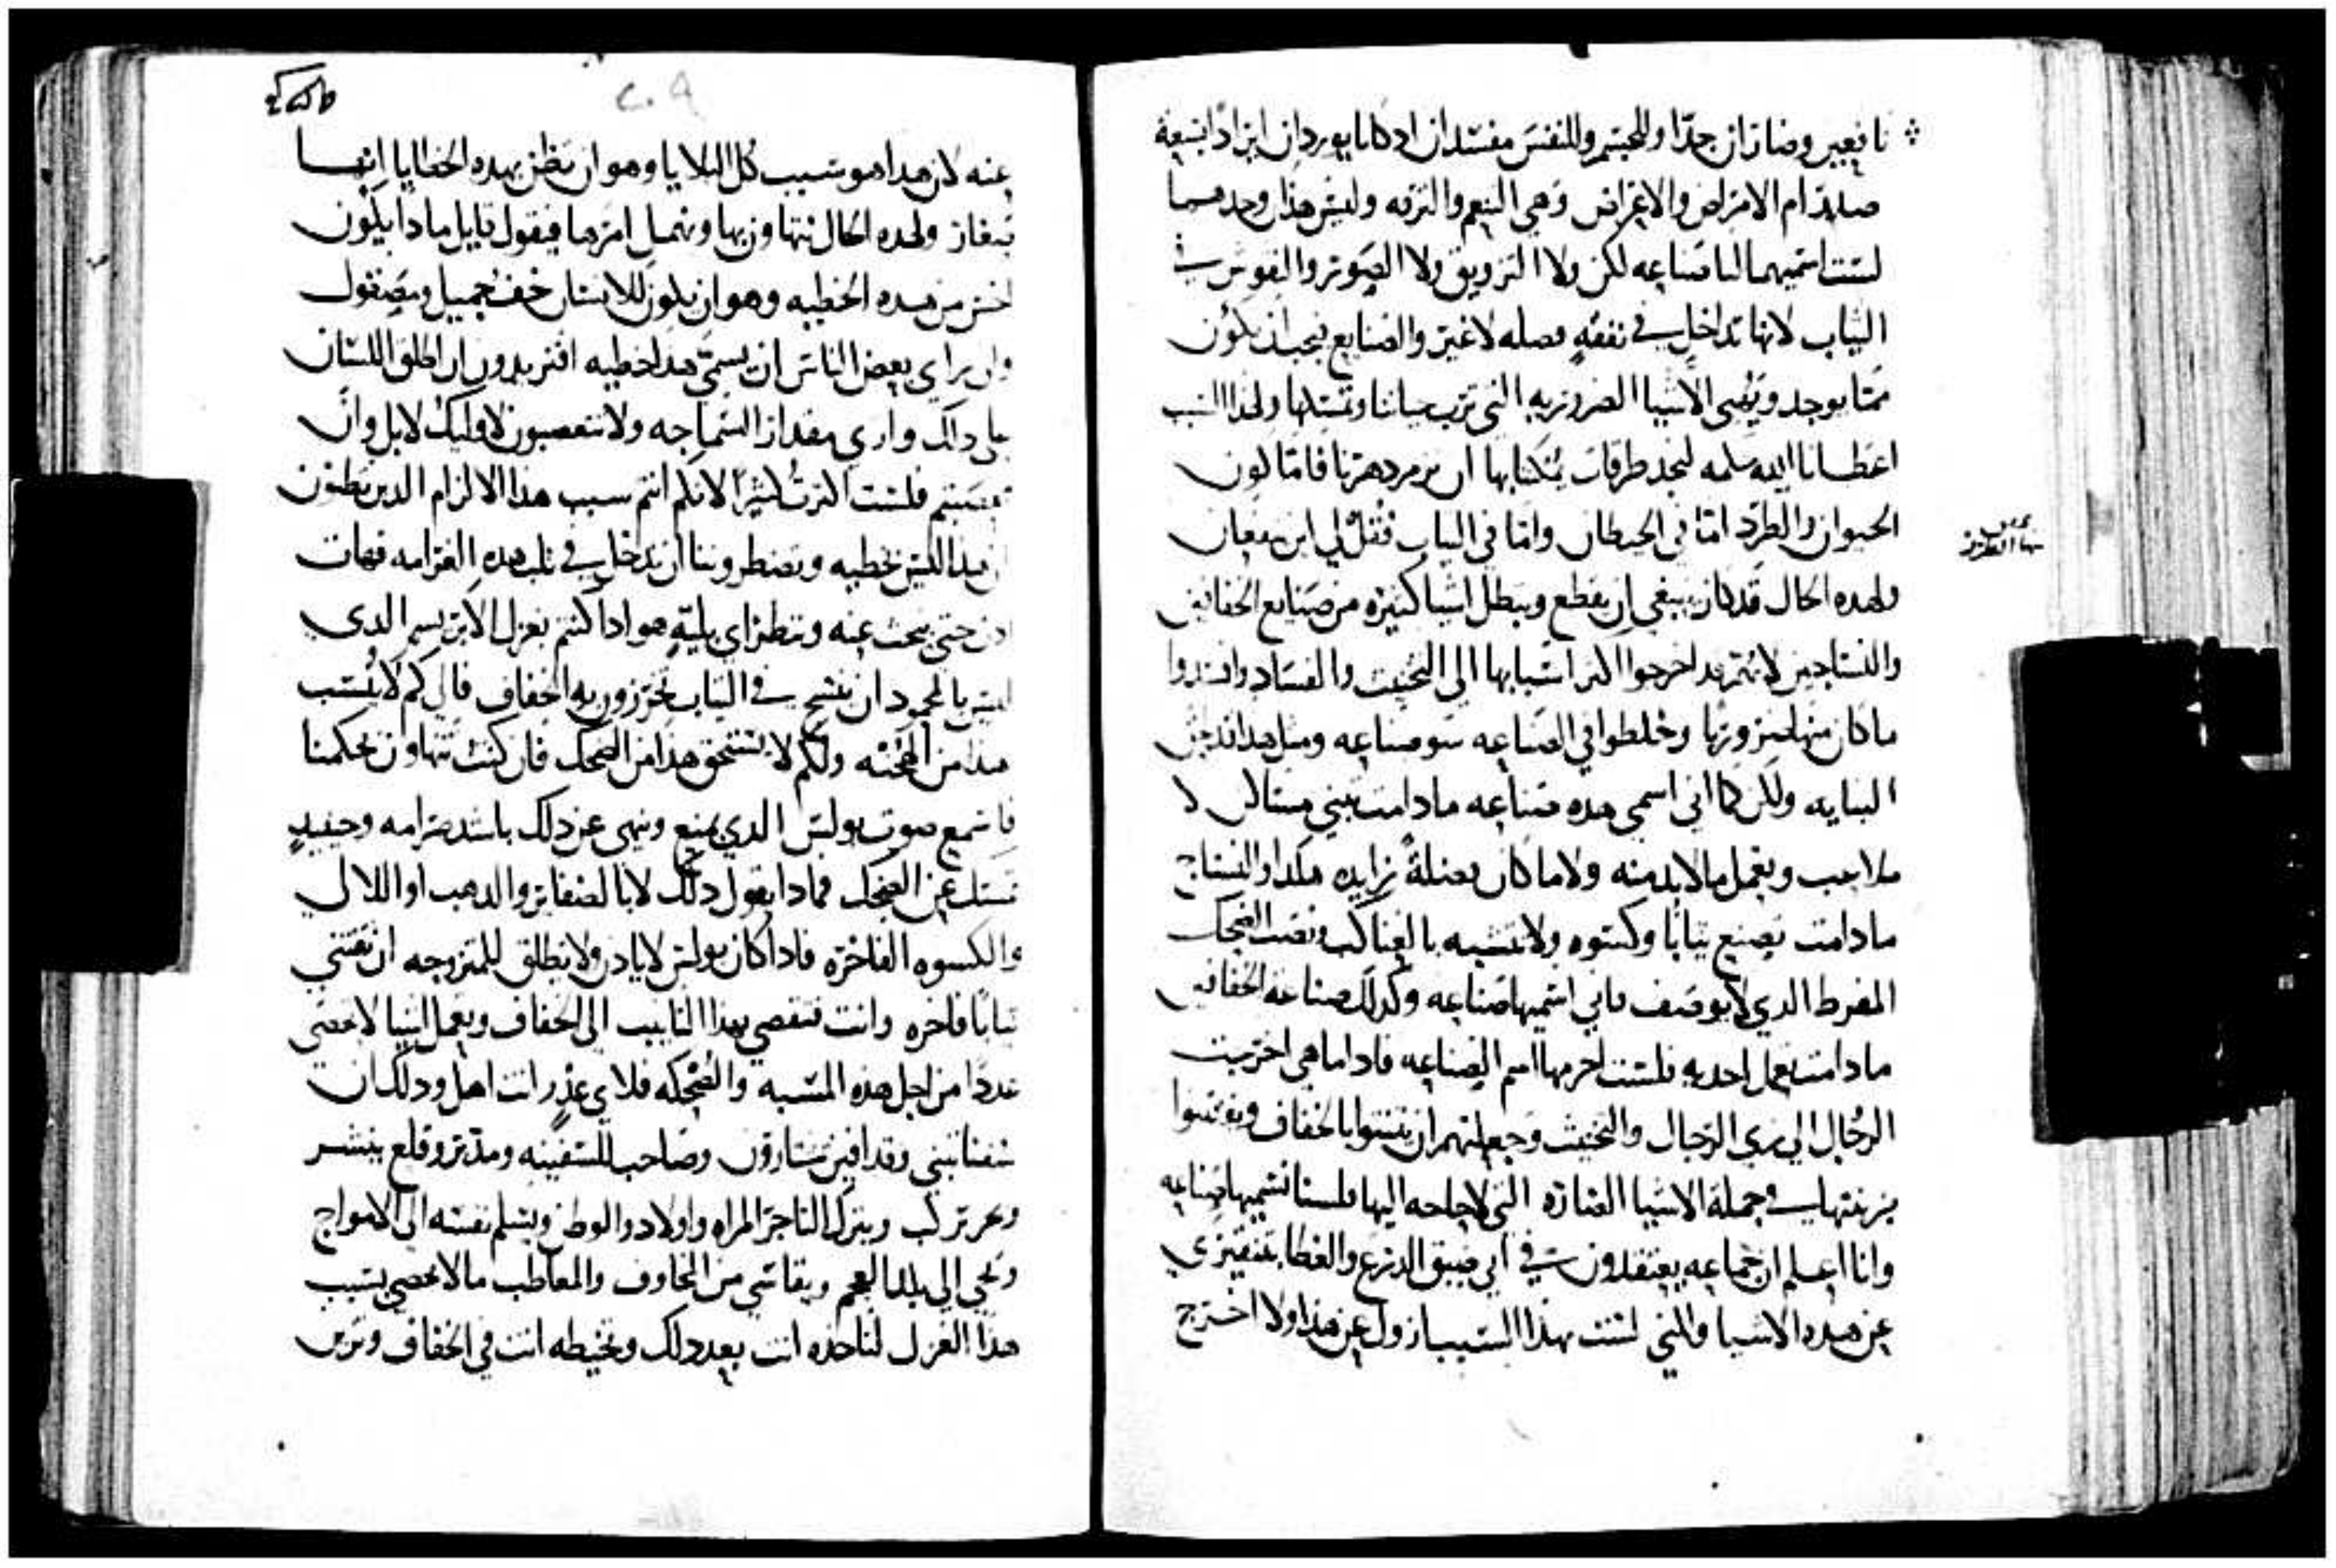 نافعين وضاران جدا وللجسم وللنفس مفسدان اد كانا يوردان ايراد انبعة
ام الامراض والاعراض وهي النعم والترفه وليس هذان وحدهما
لست اسميهما لنا صناعه لكن ولا التزويق ولا الصور والنقوش في
الثياب لانها تداخل في نفقه فضله لا غير والصنايع يجب ان تكون
مما يوجد ويهيى الاشيا الضروريه التي ترتب حياتنا وتمسكها ولهذا السبب
اعطانا الله سلمه لنجد طرقات يمكنا بها ان نرم دهرنا فاما كون
الحيوان والطرد اما في الحيطان واما في الثياب فقل لي اين منفعان
ولهده الحال قد كان ينبغي ان يقطع ويبطل اشيا كثيره من صنايع الخفافين
والنساجين لانهم قد اخرجوا اكثر اسبابها الى التخنيث والفساد وافسدوا
ما كان منها ضروريا وخلطوا في الصناعه سو صناعه ومثل هدا اندخل
البنايه ولكن كما اني اسمي هده صناعه ما دامت تبني مساكن لا
ملاعب وتعمل ما لا بد منه ولا ما كان فضلة زايده هكدا والنساج
ما دامت تصنع ثيابا وكسوه ولا تتشبه بالعناكب وتصب الضحك
المفرط الدي لا يوصف فاني اسميها صناعه وكدلك صناعة الخفافين
ما دامت تعمل احديه فلست احرمها اسم الصناعه فاداما هي اخرجت
الرجال الى زي الرجال والتخنيث وجعلتهم ان يتنوا بالخفاف
في جملة الاشيا الضاره التي لا حاجه اليها فلسنا نسميها صناعه
وانا اعلم ان جماعه يعتقدون في اني ضيق الدرع والعطا بتنقيري
عن هده الاشيا ولكني لست بهدا السبب ازول عن هدا ولا اخرج
عنه لان هدا هو سبب كل البلايا وهو ان نظن بهده الخطايا انها
صغار ولهده الحال نتهاون بها ونهمل امرها فيقول قايل مادا يكون
اخس من هده الخطيه وهو ان يكون للانسان خف جميل ومصقول
وان يراي بعض الناس ان يسمى هدا خطيه افتريدون ان اطلق اللسان
على دلك واري مقدار السماجه ولا تتعصبون لاوليك لا بل وان
تعصبتم فلست اكثرت كثيرا لانكم انتم سبب هدا الالزام الدين تظنون
ان هدا ليس بخطيه وتضطروننا ان ندخل في تلب هده الغرامه فهات
ادن حتى نبحث عنه وننظر اي بلية هو ادا كنتم بغزل الابريسم الدي
ليس بالمحمود ان ينسج في الثياب تخرزون به الخفاف فالى كم لا تسب
هدا من الهجنه ولكم لا يستحق هدا من الضحك فان كنت تتهاون بحكمنا
فاسمع صوت بولس الدي يمنع وينهى عن دلك باشد صرامه وحينيد
تمسك عن الضحك فمادا يقول دلك لا بالضفاير والدهب او اللالي
والكسوه الفاخره فادا كان بولس لا يادن ولا يطلق للمتزوجه ان تقتني
ثيابا فاخره وانت فتقصي بهدا التانيث الى الخفاف وتعمل اشيا لا تحصى
عددا من اجل هده المسبه والضحكه فلاي عذر انت اهل ودلك ان
سفنا تبنى وقدافين يستارون وصاحب للسفينه ومدبر وقلع ينشر
وبحر تركب ويترك التاجر المراه واولاد والوطن ويسلم نفسه الى الامواج
وتجي الى بلد العجم ويقاسي من المخاوف والمعاطب ما لا تحصى بسبب
هدا الغزل لتاخده انت بعد دلك وتخيطه انت في الخفاف وتزين